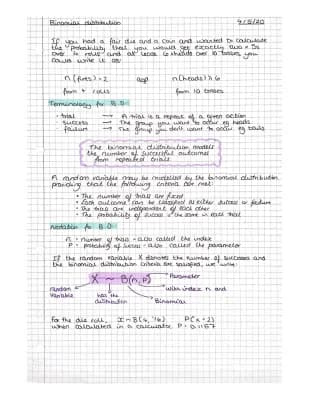 Binomial distribution
9/5/20
If you had a fair die and a coin and wanted to calculate
the probability that you would get exactly two 5s
in 4 rolls and at least 6 heads over 10 tosses, you
could write it as:
n(fives) = 2 and n(heads) ≥ 6
from 4 rolls from 10 tosses
Terminology for B.D.
· trial → A trial is a repeat of a given action
· success → The group you want to occur eg heads
· failure → The group you don't want to occur eg tails
The binomial distribution models
the number of successful outcomes
from repeated trials
A random variable may be modelled by the binomial distribution
providing that the following criteria are met:
• The number of trials are fixed
• Each outcome can be classified as either success or failure
• The trials are independent of each other
• The probability of success is the same in each trial
Notation for B.D.
n = number of trials - also called the index
P = probability of success - also called the parameter
If the random variable X denotes the number of successes and
the binomial distribution criteria are satisfied, we write:
X ~ B(n, p)
Parameter
random
variable
has the
distribution
Binomial
with index n and
For the die roll, X~B(4, 1/6) P(X = 2)
when calculated in a calculator P = 0.1157